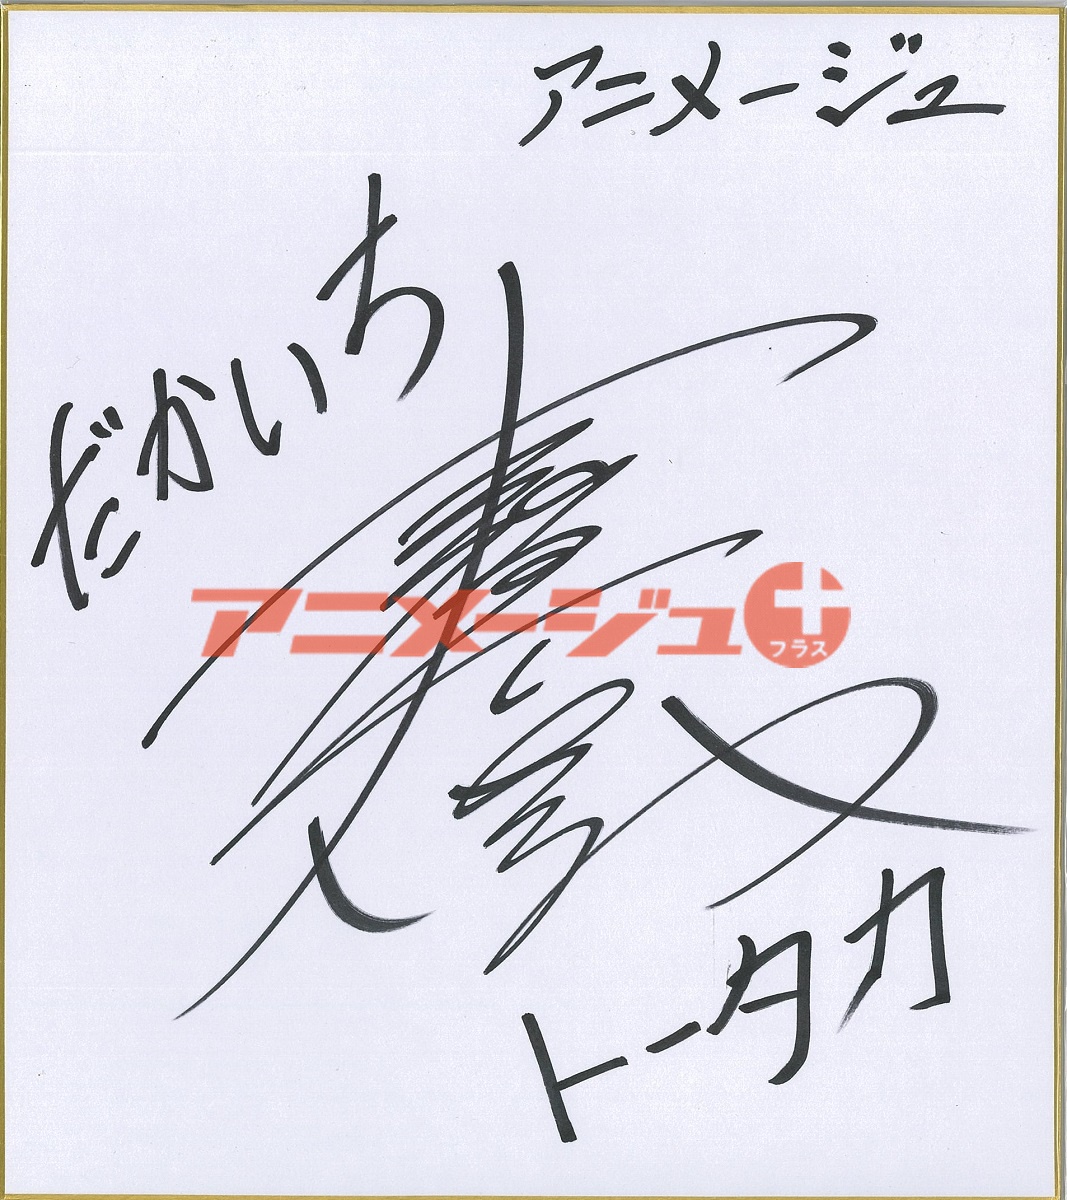 アニメージュ
だかいち
アニメージュ
プラス
トータカ